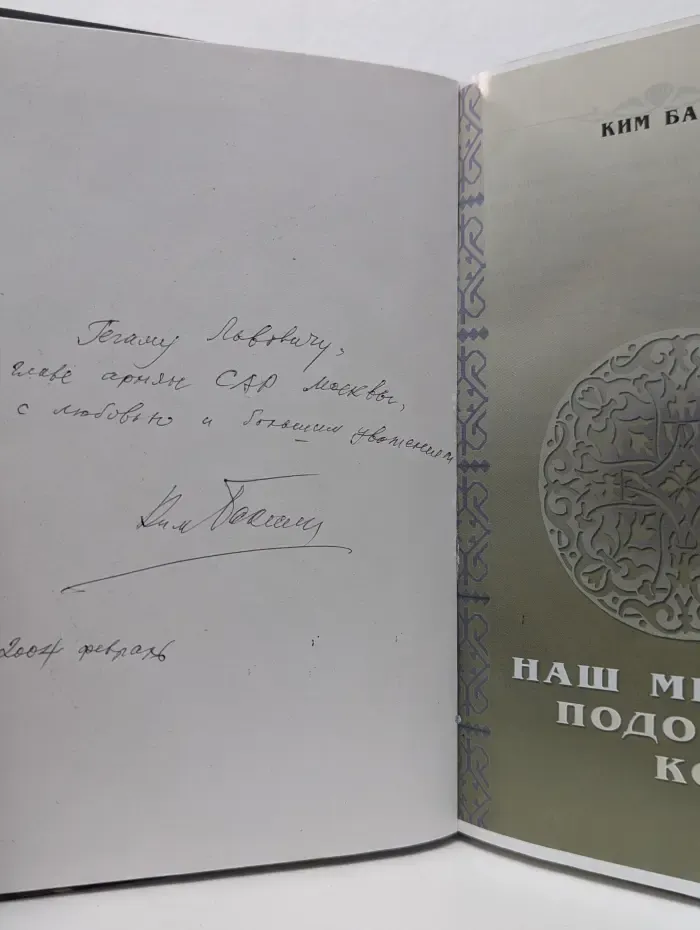 Гегаму Львовичу,
главе армян САР Москвы,
с любовью и большим уважением
Ким Бакши
2004 февраль
КИМ БА
НАШ М
ПОДО
К